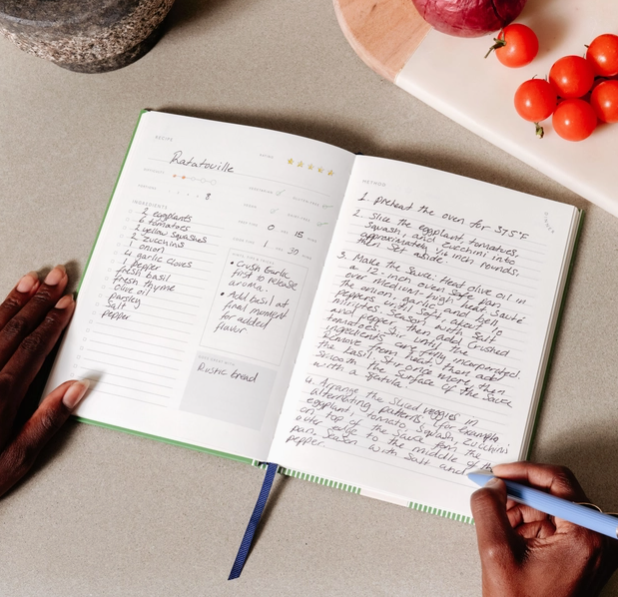 RECIPE
Ratatouille
RATING
8
0
15
1
30
INGREDIENTS
2 eggplants
6 tomatoes
2 yellow squashes
2 zucchinis
1 onion
4 garlic cloves
1 pepper
fresh basil
fresh thyme
olive oil
parsley
salt
pepper
• Crush garlic
first to release
aroma.
• Add basil at
final moment
for added
flavor
Rustic bread
METHOD
1. preheat the oven for 375°F
2. Slice the eggplant, tomatoes,
Squash, and zucchini into
approximately 1/16 inch rounds,
then set aside
3. Make the sauce: Heat olive oil in
a 12-inch oven safe pan
over medium-high heat. Sauté
the onion, garlic, and bell
peppers until soft, about 10
minutes. Season with salt
and pepper, then add crushed
tomatoes. Stir until the
ingredients are fully incorporated.
Remove from heat, then add
the basil. Stir once more, then
smooth the surface of the sauce
with a spatula.
4. Arrange the sliced veggies in
alternating patterns, (for example:
eggplant, tomato, squash, zucchini
on top of the sauce from the
outer edge to the middle of the
pan. Season with salt and
pepper.